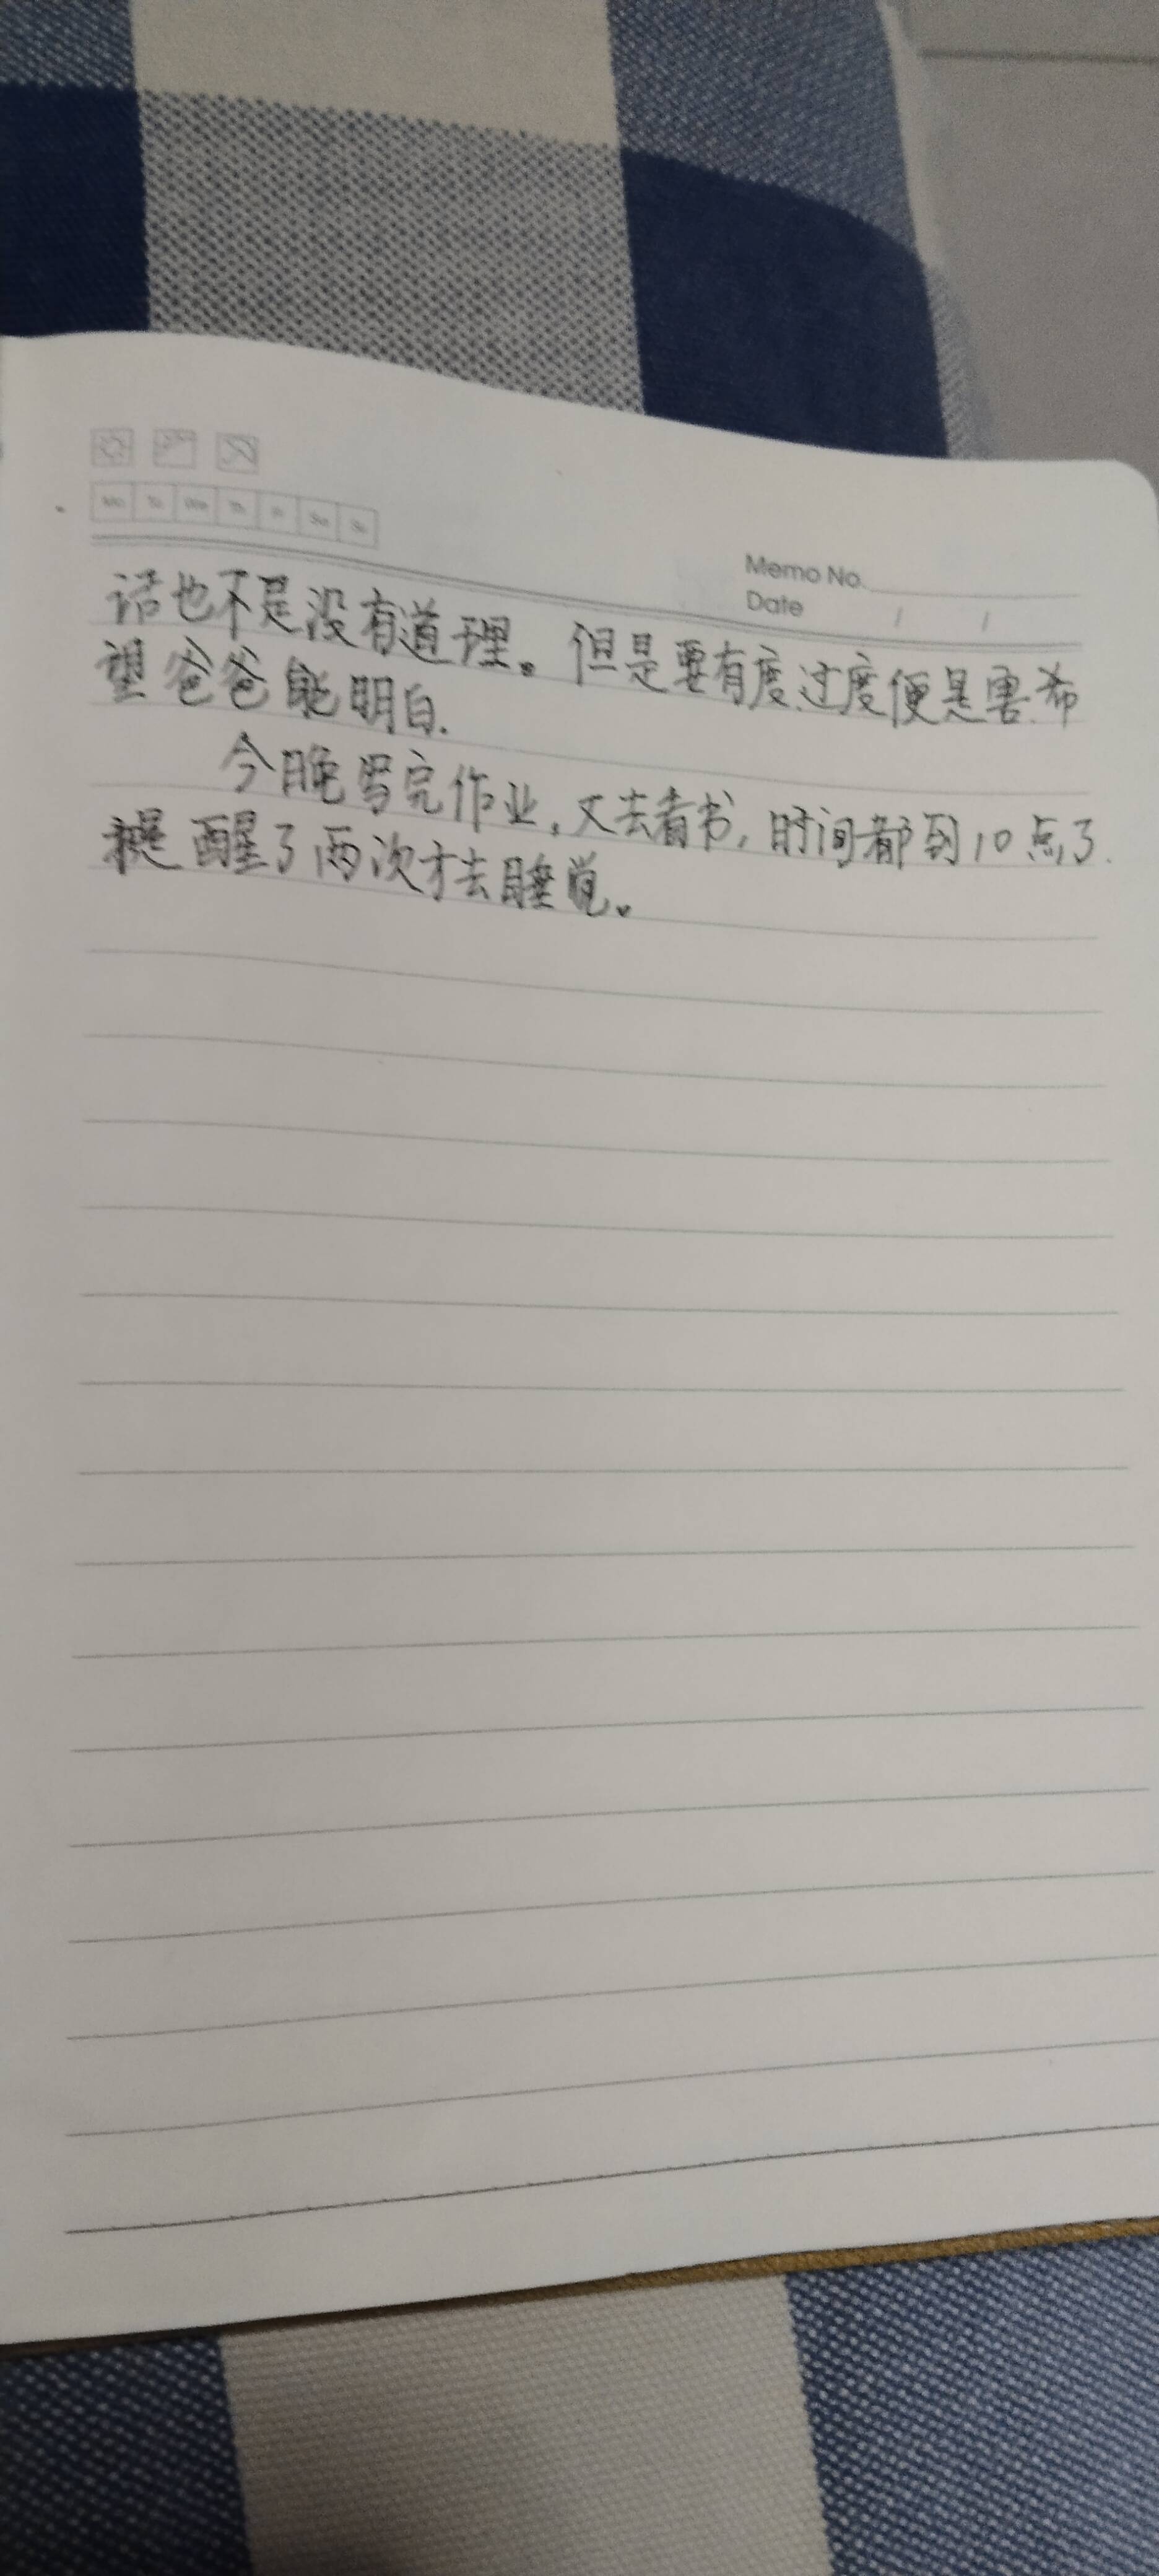 Mo Tu We Th Fr Sa Su
Memo No.
Date / /
话也不是没有道理。但是要有度,过度便是害.希
望爸爸能明白.
今晚写完作业,又去看书,时间都到10点了.
提醒了两次才去睡觉。